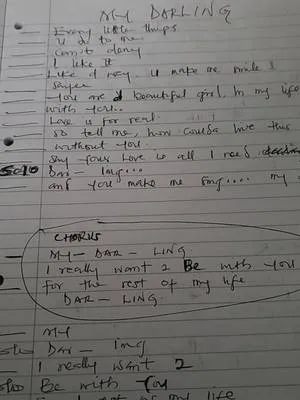 MY DARLING
Every little things
u do to me
can't deny
I like it
Like d way u make me smile &
You are d beautiful girl in my life
with you..
Love is for real.
so tell me, how could live this
without you.
Say your love is all I need
Solo Dar - ling...
and you make me sing.... my
CHORUS
MY - DAR - LING
I really want 2 BE with you
for the rest of my life
DAR - LING
MY
Solo Dar - ling
I really want 2
Solo Be with You
rest of my life